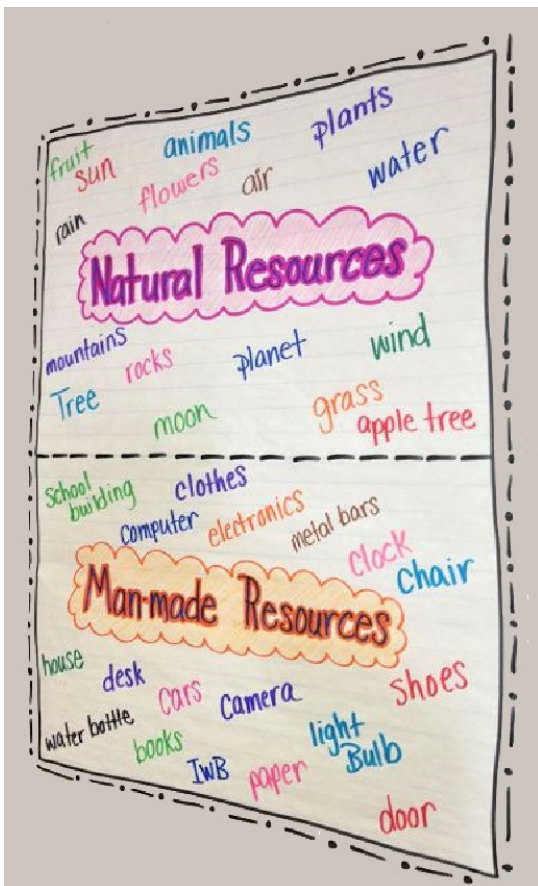 fruit
sun
animals
plants
flowers
air
water
rain
Natural Resources
mountains
rocks
planet
wind
Tree
moon
grass
apple tree
school
building
clothes
computer
electronics
metal bars
clock
chair
Man-made Resources
house
desk
cars
camera
shoes
water bottle
books
IWB
paper
light
Bulb
door